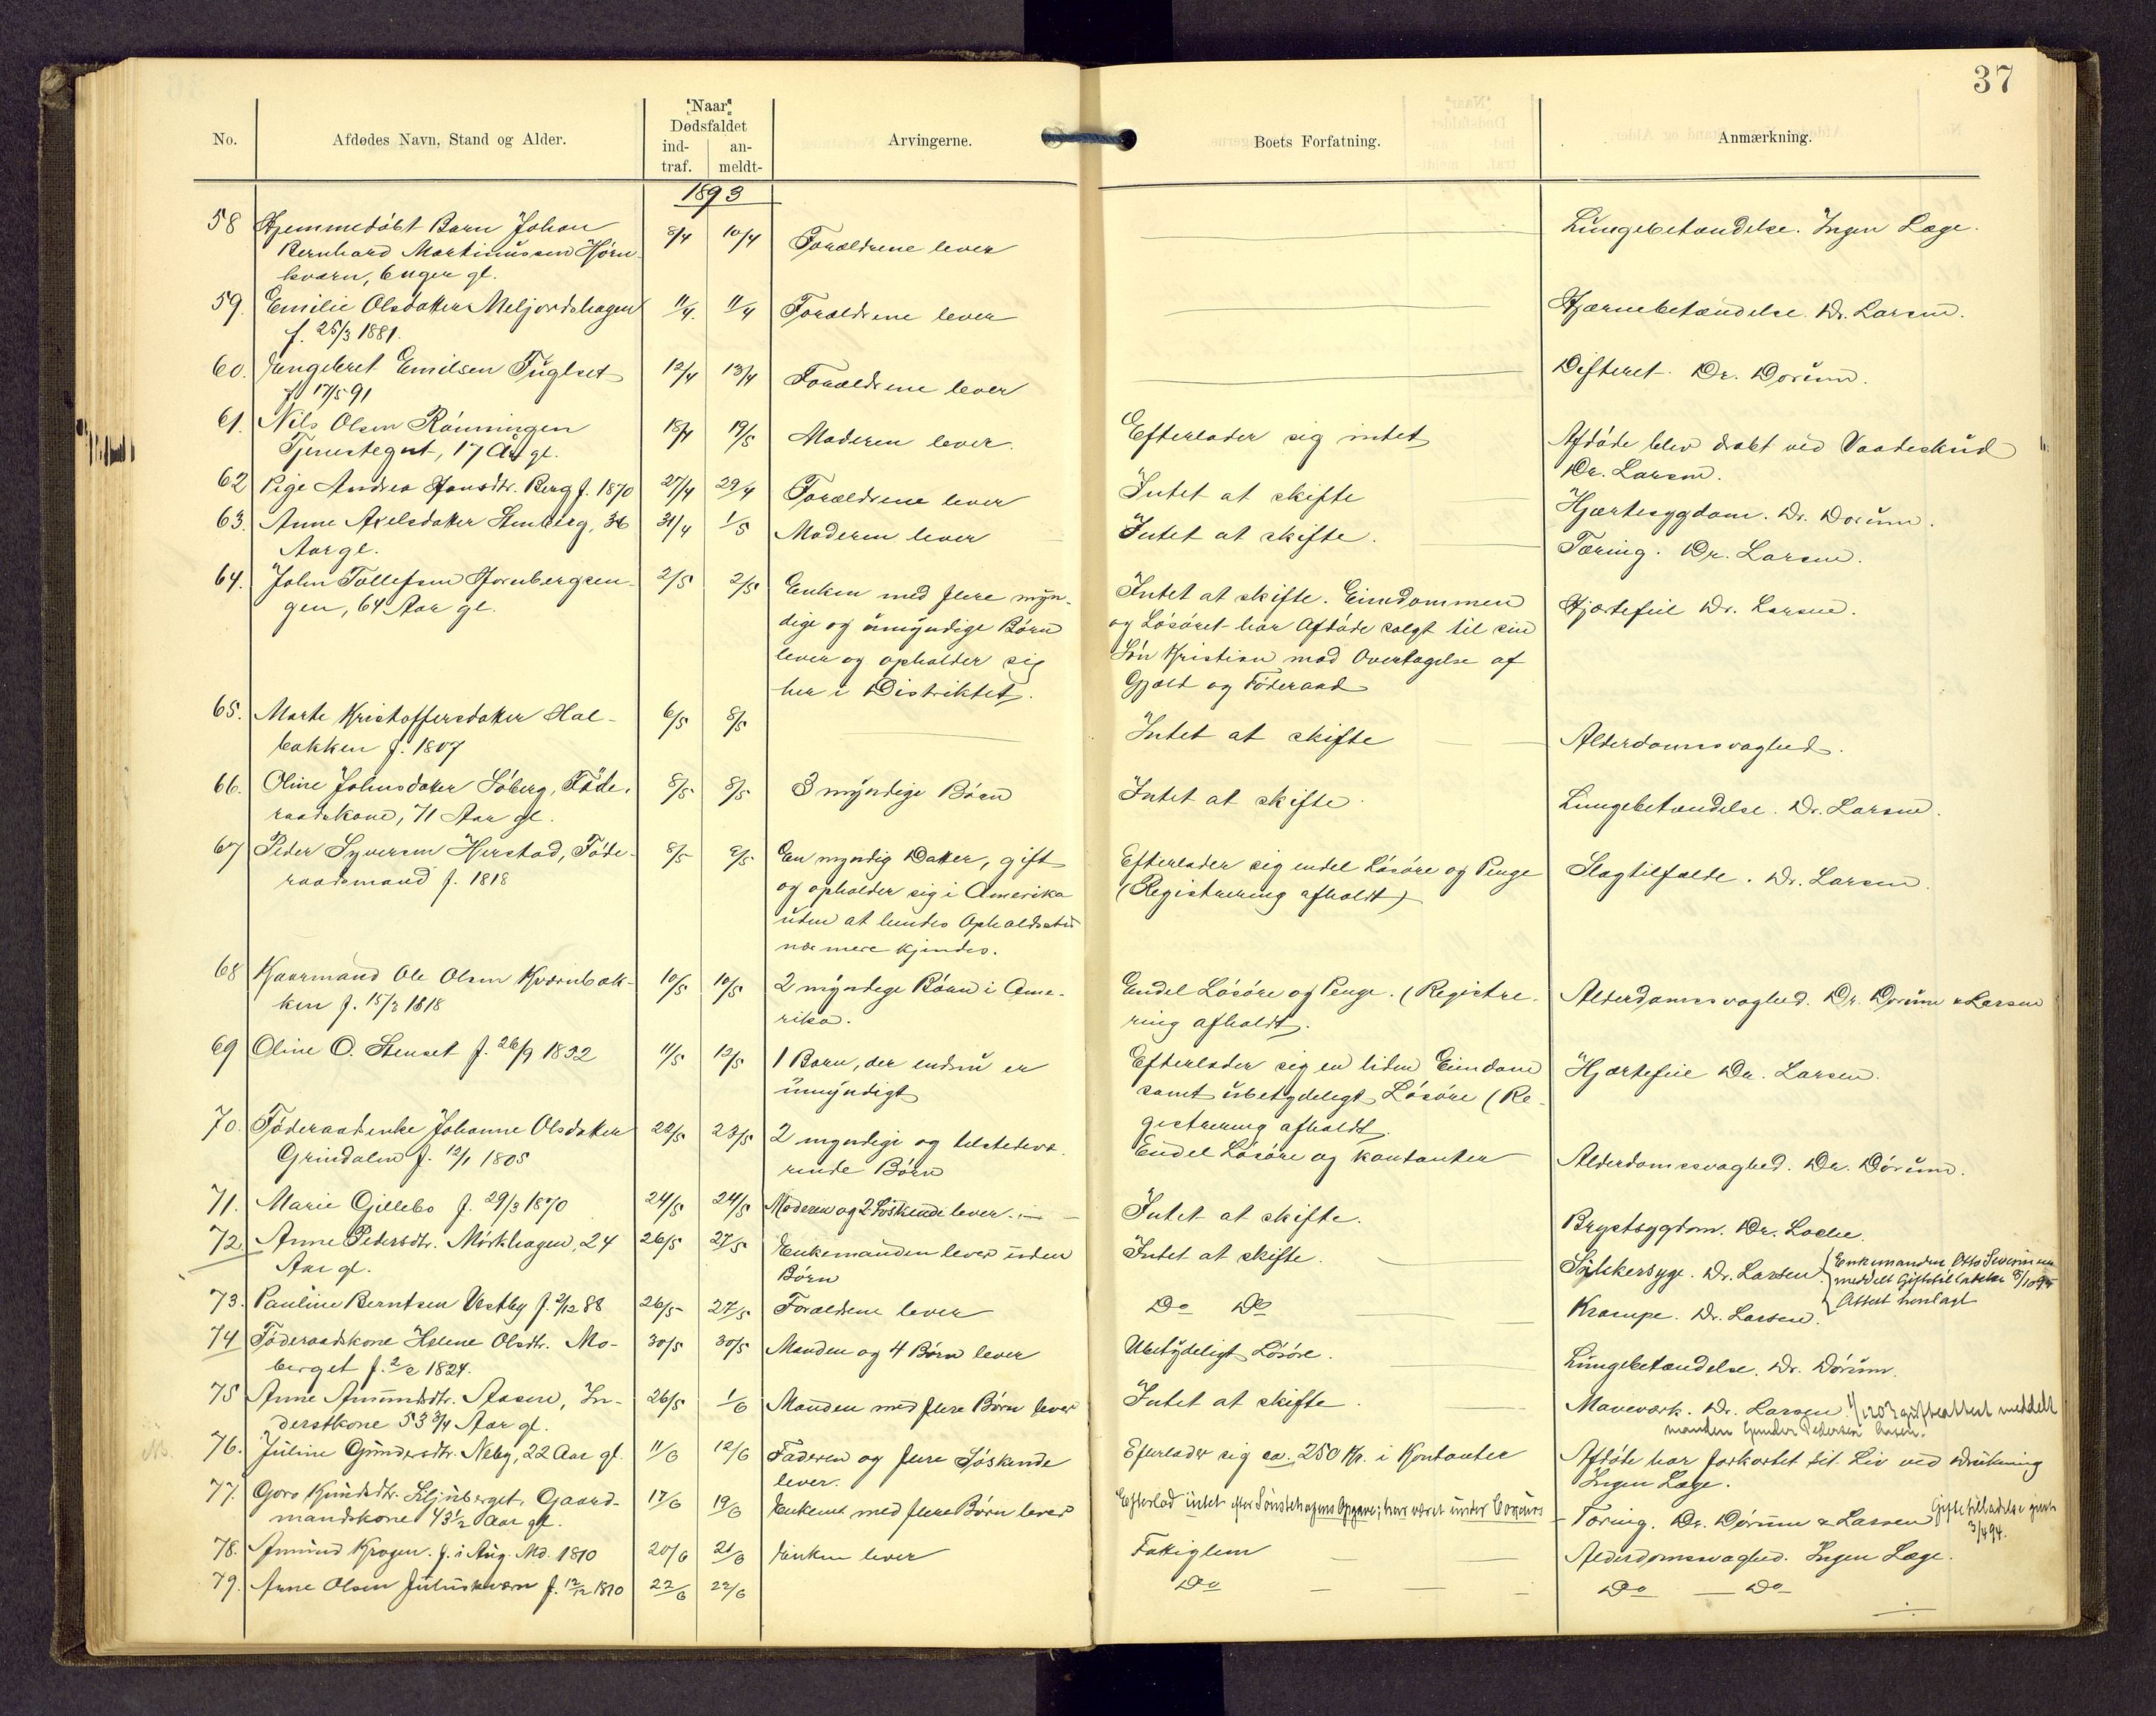 37
No. Afdødes Navn, Stand og Alder. "Naar" Dødsfaldet ind-traf. an-meldt- Arvingerne. Boets Forfatning. Anmærkning.
1893
58 Hjemmedøbt Barn Johan 8/4 10/4 Forældrene lever Lungebetændelse. Ingen Læge.
Bernhard Martinussen Hjørn-
kværn, 6 uger gl.
59. Emilie Olsdatter Meljordshagen 11/4. 11/4 Forældrene lever Hjærnebetændelse. Dr. Larsen.
f. 25/3 1881.
60. Engebret Emilsen Fuglset 12/4 13/4 Forældrene lever Difteret. Dr. Dorum.
f. 17/5 91
61. Nils Olsen Rønningen 18/4 19/5 Moderen lever. Efterlader sig intet Afdøde blev dræbt ved Vaadeskud
Tjenestegut, 17 Aar gl. Dr. Larsen.
62 Pige Andrea Hansdtr. Berg f. 1870 27/4 29/4 Forældrene lever Intet at skifte Hjærtesygdom. Dr. Dorum.
63. Anne Axelsdatter Stenberg, 36 31/4 1/5 Moderen lever Intet at skifte. Tæring. Dr. Larsen.
Aar gl.
64. John Tollefsen Hornbergsen- 2/5 2/5 Enken med flere myn- Intet at skifte. Eiendommen Hjertefeil Dr. Larsen.
gen, 64 Aar gl. dige og umyndige Børn og Løsøret har Afdøde solgt til sin
lever og opholder sig Søn Kristian mod Overtagelse af
her i Distriktet. Gjæld og Føderaad
65. Marte Kristoffersdatter Hal- 6/5 8/5 Intet at skifte Alderdomssvaghed.
bakken f. 1807
66. Oline Johnsdatter Søberg, Føde- 8/5 8/5 3 myndige Børn Intet at skifte. Lungebetændelse. Dr. Larsen.
raadskone, 71 Aar gl.
67 Peder Syversen Herstad, Føde- 8/5 8/5 En myndig Datter, gift Efterlader sig endel Løsøre og Penge Slagtilfælde. Dr. Larsen.
raadsmand f. 1818 og opholder sig i Amerika (Registrering afholdt)
uden at hendes Opholdssted
nærmere kjendes.
68 Kaarmand Ole Olsen Kværnbak- 10/5 10/5 2 myndige Børn i Ame- Endel Løsøre og Penge. (Registre- Alderdomssvaghed. Dr. Dorum & Larsen
ken f. 15/3 1818 rika. ring afholdt.
69 Oline O. Stenset f. 26/9 1832 11/5 12/5 1 Barn, der endnu er Efterlader sig en liden Eiendom Hjærtefeil Dr. Larsen.
umyndigt samt ubetydeligt Løsøre (Re-
gistrering afholdt.
70. Føderaadenke Johanne Olsdatter 22/5 23/5 2 myndige og tilstedevæ- Endel Løsøre og kontanter Alderdomssvaghed. Dr. Dørum.
Grindalen f. 12/1 1805 rende Børn
71. Marie Gillebo f. 29/3 1870 24/5 24/5 Moderen og 2 Søskende lever. Intet at skifte. Brystsygdom. Dr. Loche.
72 Anne Pedersdtr. Mørkhagen, 24 26/5 27/5 Enkemanden lever uden Intet at skifte. Sukkersyge. Dr. Larsen { Enkemanden Otto Severinsen
Aar gl. Børn meddelt Giftetilladelse
Attest henlagt
73. Pauline Berntsen Vestby f. 2/12 88 26/5 27/5 Forældrene lever Do Do Krampe. Dr. Larsen.
74 Føderaadskone Helene Olsdtr. Mo- 30/5 30/5 Manden og 4 Børn lever Ubetydeligt Løsøre. Lungebetændelse. Dr. Dörum.
berget f. 2/2 1824.
75 Anne Amundsdtr. Aasen, In- 26/5 1/6 Manden med flere Børn lever Intet at skifte. Maveværk. Dr. Larsen. giftattest meddelt
derstkone 53 3/4 Aar gl. manden Gunder Pedersen Aasen.
76. Juline Gundersdtr. Neby, 22 Aar gl. 11/6 12/6 Faderen og flere Søskende Efterlader sig ca. 250 Kr. i Kontanter Afdøde har forkortet sit Liv ved Drukning
lever. Ingen Læge.
77. Goro Knudsdtr. Gaard- 17/6 19/6 Enkemd med flere Børn lever Efterlod intet efter Sønstehagens Opgave; har været under Concurs Tæring. Dr. Dørum & Larsen Giftetilladelse given
mandskone 43 1/2 Aar gl. 3/4 94.
78. Amund Krogen. f. i Aug. Md. 1810 20/6 21/6 Enken lever Fattiglem Alderdomssvaghed. Ingen Læge.
79. Anne Olsen Juliuskværn f. 12/12 1810 22/6 22/6 Do Do Do